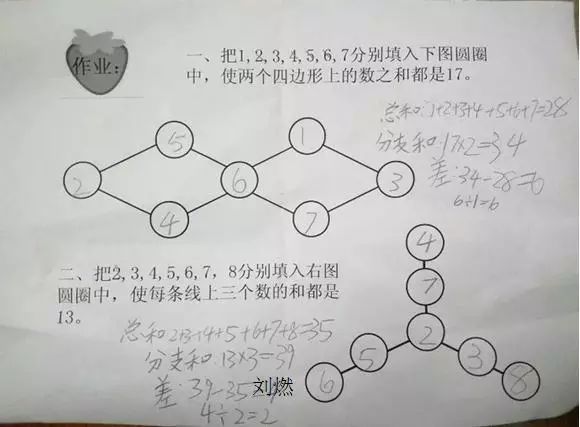 作业：
一、把1,2,3,4,5,6,7分别填入下图圆圈
中，使两个四边形上的数之和都是17。
总和：1+2+3+4+5+6+7=28
分支和：17×2=34
差：34-28=6
6÷1=6
5
1
2
6
3
4
7
二、把2,3,4,5,6,7，8分别填入右图
圆圈中，使每条线上三个数的和都是
13。
总和2+3+4+5+6+7+8=35
分支和：13×3=39
差：39-35
4÷2=2
刘燃
4
7
2
5
3
6
8